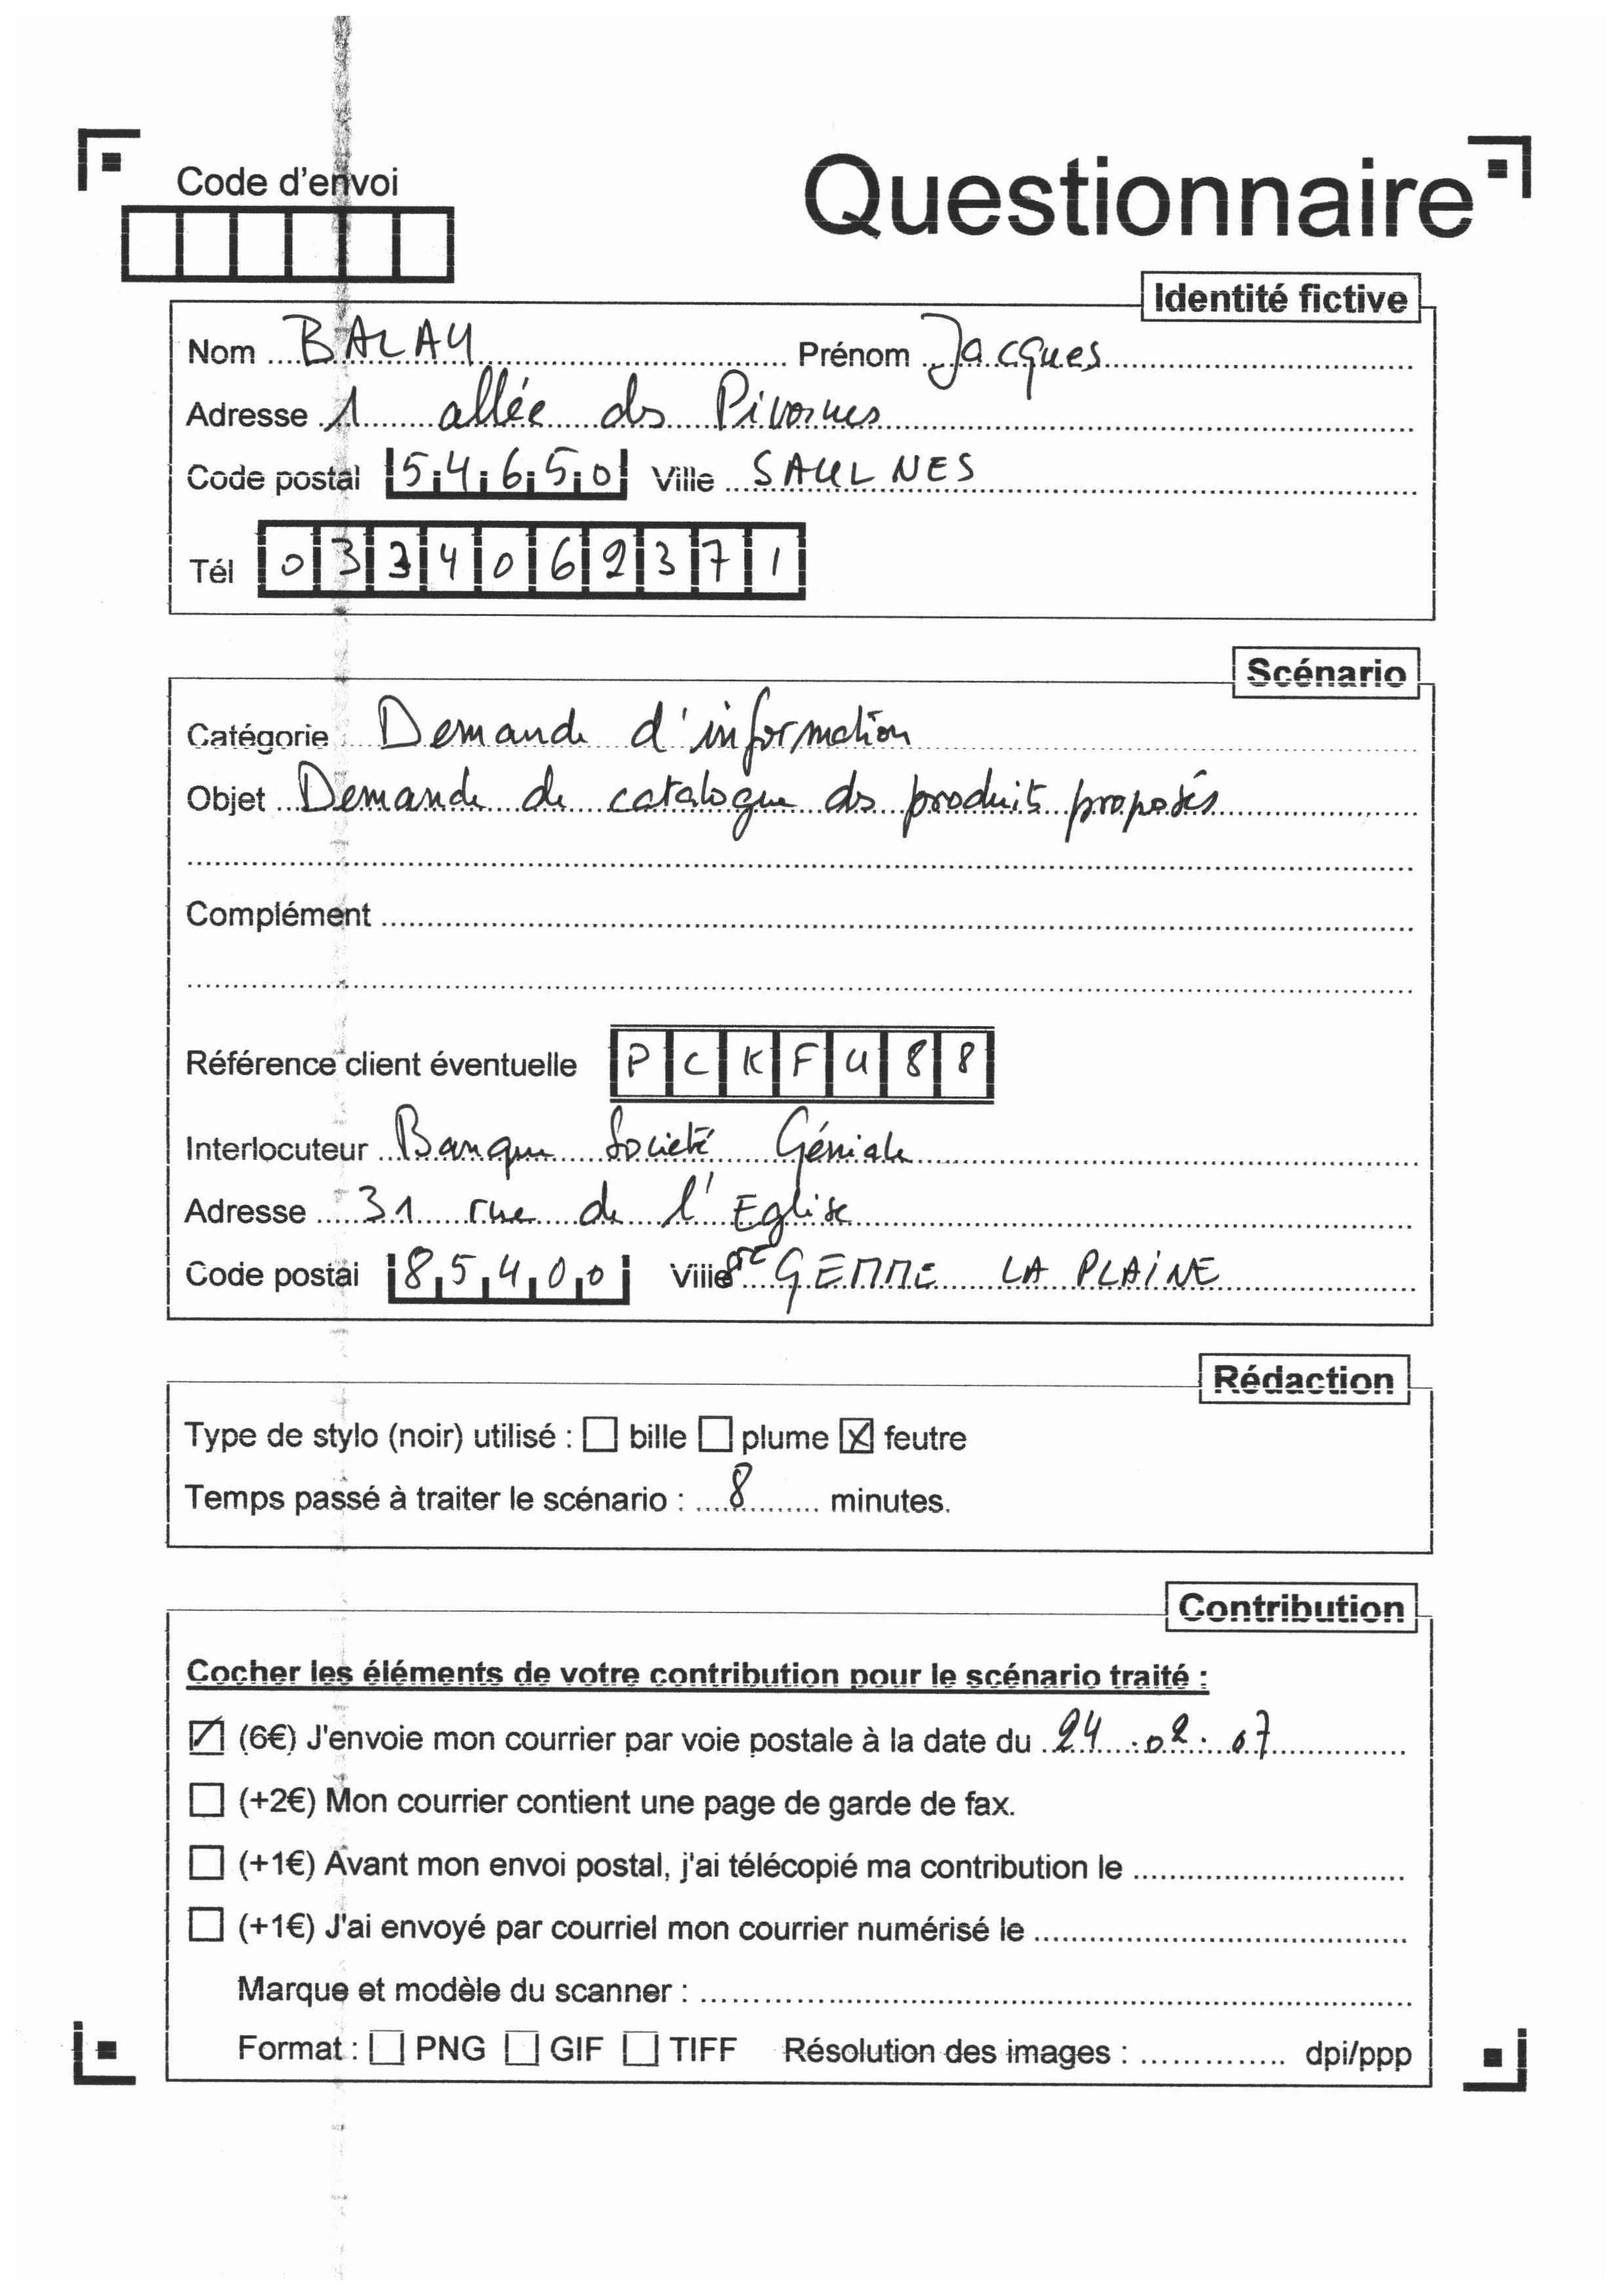 Code d'envoi
Questionnaire
Identité fictive
Nom BALAY Prénom Jacques
Adresse 1 allée des Pivoines
Code postal 54650 Ville SAULNES
Tél 0334069371
Scénario
Catégorie Demande d'information
Objet Demande de catalogue des produits proposés
Complément
Référence client éventuelle PCKFU88
Interlocuteur Banque Société Géniale
Adresse 31 rue de l'Eglise
Code postal 85400 Ville Ste GEMME LA PLAINE
Rédaction
Type de stylo (noir) utilisé : ☐ bille ☐ plume ☒ feutre
Temps passé à traiter le scénario : 8 minutes.
Contribution
Cocher les éléments de votre contribution pour le scénario traité :
☒ (6€) J'envoie mon courrier par voie postale à la date du 24.02.07
☐ (+2€) Mon courrier contient une page de garde de fax.
☐ (+1€) Avant mon envoi postal, j'ai télécopié ma contribution le
☐ (+1€) J'ai envoyé par courriel mon courrier numérisé le
Marque et modèle du scanner :
Format : ☐ PNG ☐ GIF ☐ TIFF Résolution des images : dpi/ppp